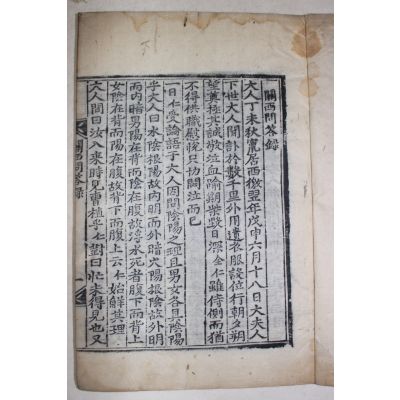 關西問答錄
大人丁未秋竄居西徼翌年戊申六月十八日大夫人
下世大人聞訃於數千里外用遺衣服設位行朝夕朔
望奠極其誠敬泣血喻期柴毀日深全仁雖侍側而猶
不得供職慰悅只切闕泣而已
一日仁受論語于大人因問陰陽之理且男女各具陰陽
乎大人曰水陰根陽故內明而外暗火陽根陰故外明
而內暗男陽在腹而陰在背故浮水死者腹下而背上
女陰在背而陽在腹故背下而腹上云仁始解其理
大人問曰汝入來時見曹植乎仁對曰忙未得見也又
關西問答錄
一